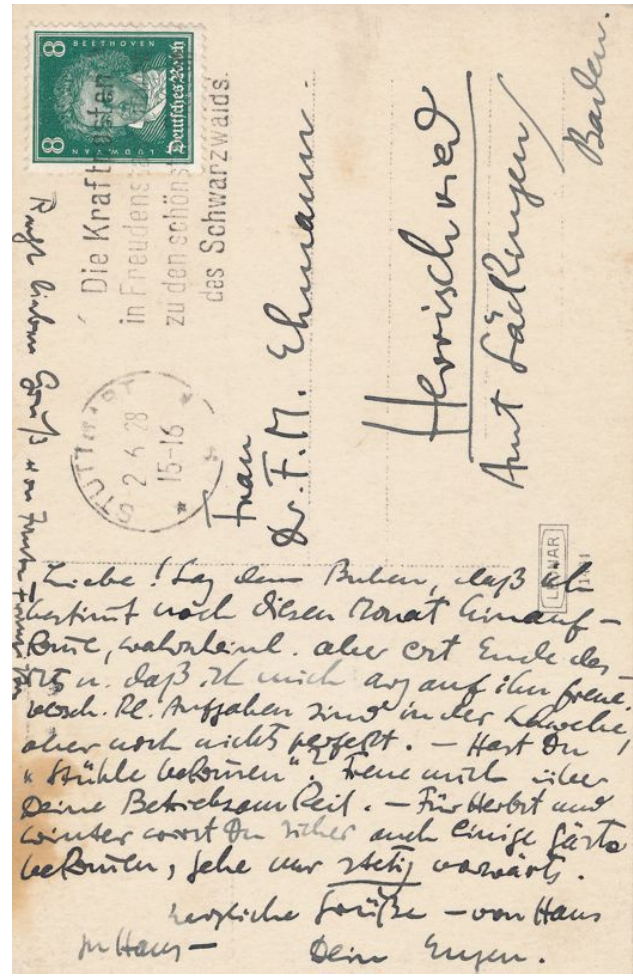 8 BEETHOVEN 8
LUDW. VAN
Deutsches Reich
Die Kraft
in Freudensta
zu den schönst
des Schwarzwalds.
STUTTGART
2 6 28
15-16
Frau
Dr. F. M. Ehmann.
Herrischried
Amt Säckingen
Baden.
LEONAR
Liebe! Sag dem Buben, daß ich
bestimt noch diesen Monat hinauf-
kome, wahrscheinl. aber erst Ende des
u. daß ich mich arg auf ihn freue.
Aufgaben sind in der Schwebe,
aber noch nichts perfekt. – Hast Du
"Stühle bekomen"? Freue mich über
Deine Betriebsamkeit. – Für Herbst und
Winter wirst Du sicher auch einige Gäste
bekomen, gehe nur stetig vorwärts.
herzliche Grüße – von Haus
zu Haus –
Dein Eugen.
lieben Gruß von